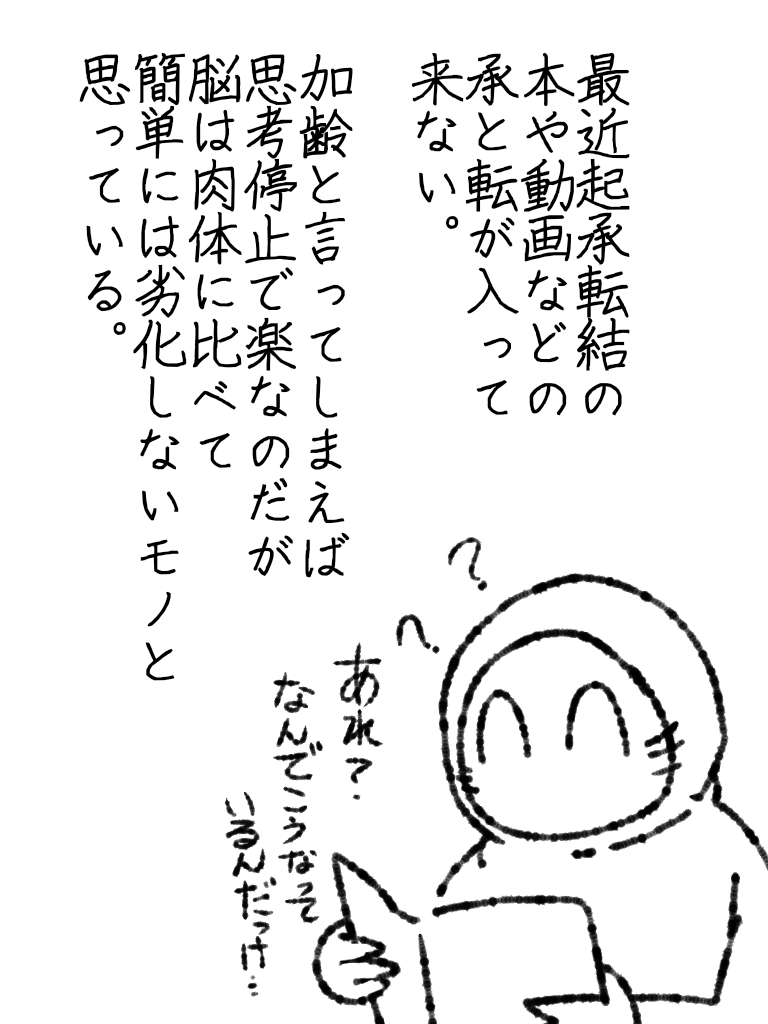 最近起承転結の
本や動画などの
承と転が入って
来ない。
加齢と言ってしまえば
思考停止で楽なのだが
脳は肉体に比べて
簡単には劣化しないモノと
思っている。
？
？
あれ？
なんでこうなって
いるんだっけ…